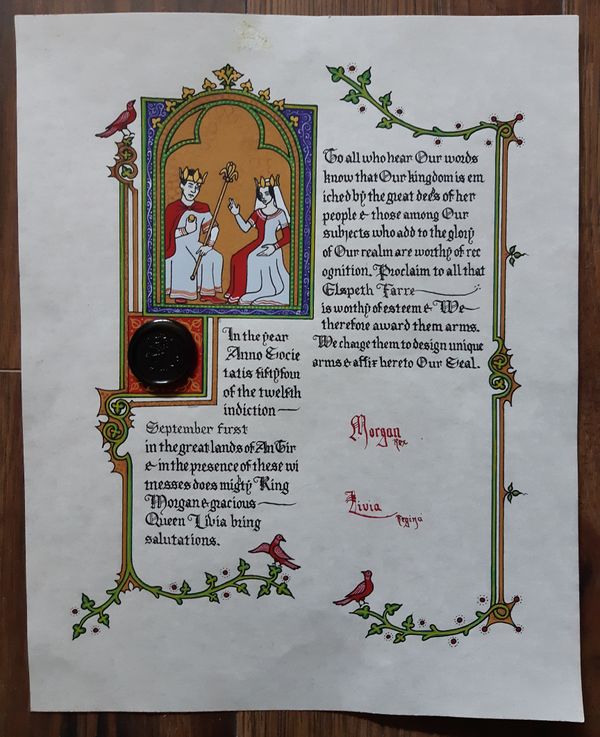 In the year
Anno Socie
tatis fiftyfour
of the twelfth
indiction
September first
in the great lands of An Tir
& in the presence of these wi
tnesses does migty King
Morgan & gracious
Queen Livia bring
salutations.
To all who hear Our words
know that Our kingdom is en
iched by the great deeds of her
people & those among Our
subjects who add to the glory
of Our realm are worthy of rec
ognition. Proclaim to all that
Elspeth Farre
is worthy of esteem & We
therefore award them arms.
We charge them to design unique
arms & affix hereto Our Seal.
Morgan
Rex
Livia
Regina